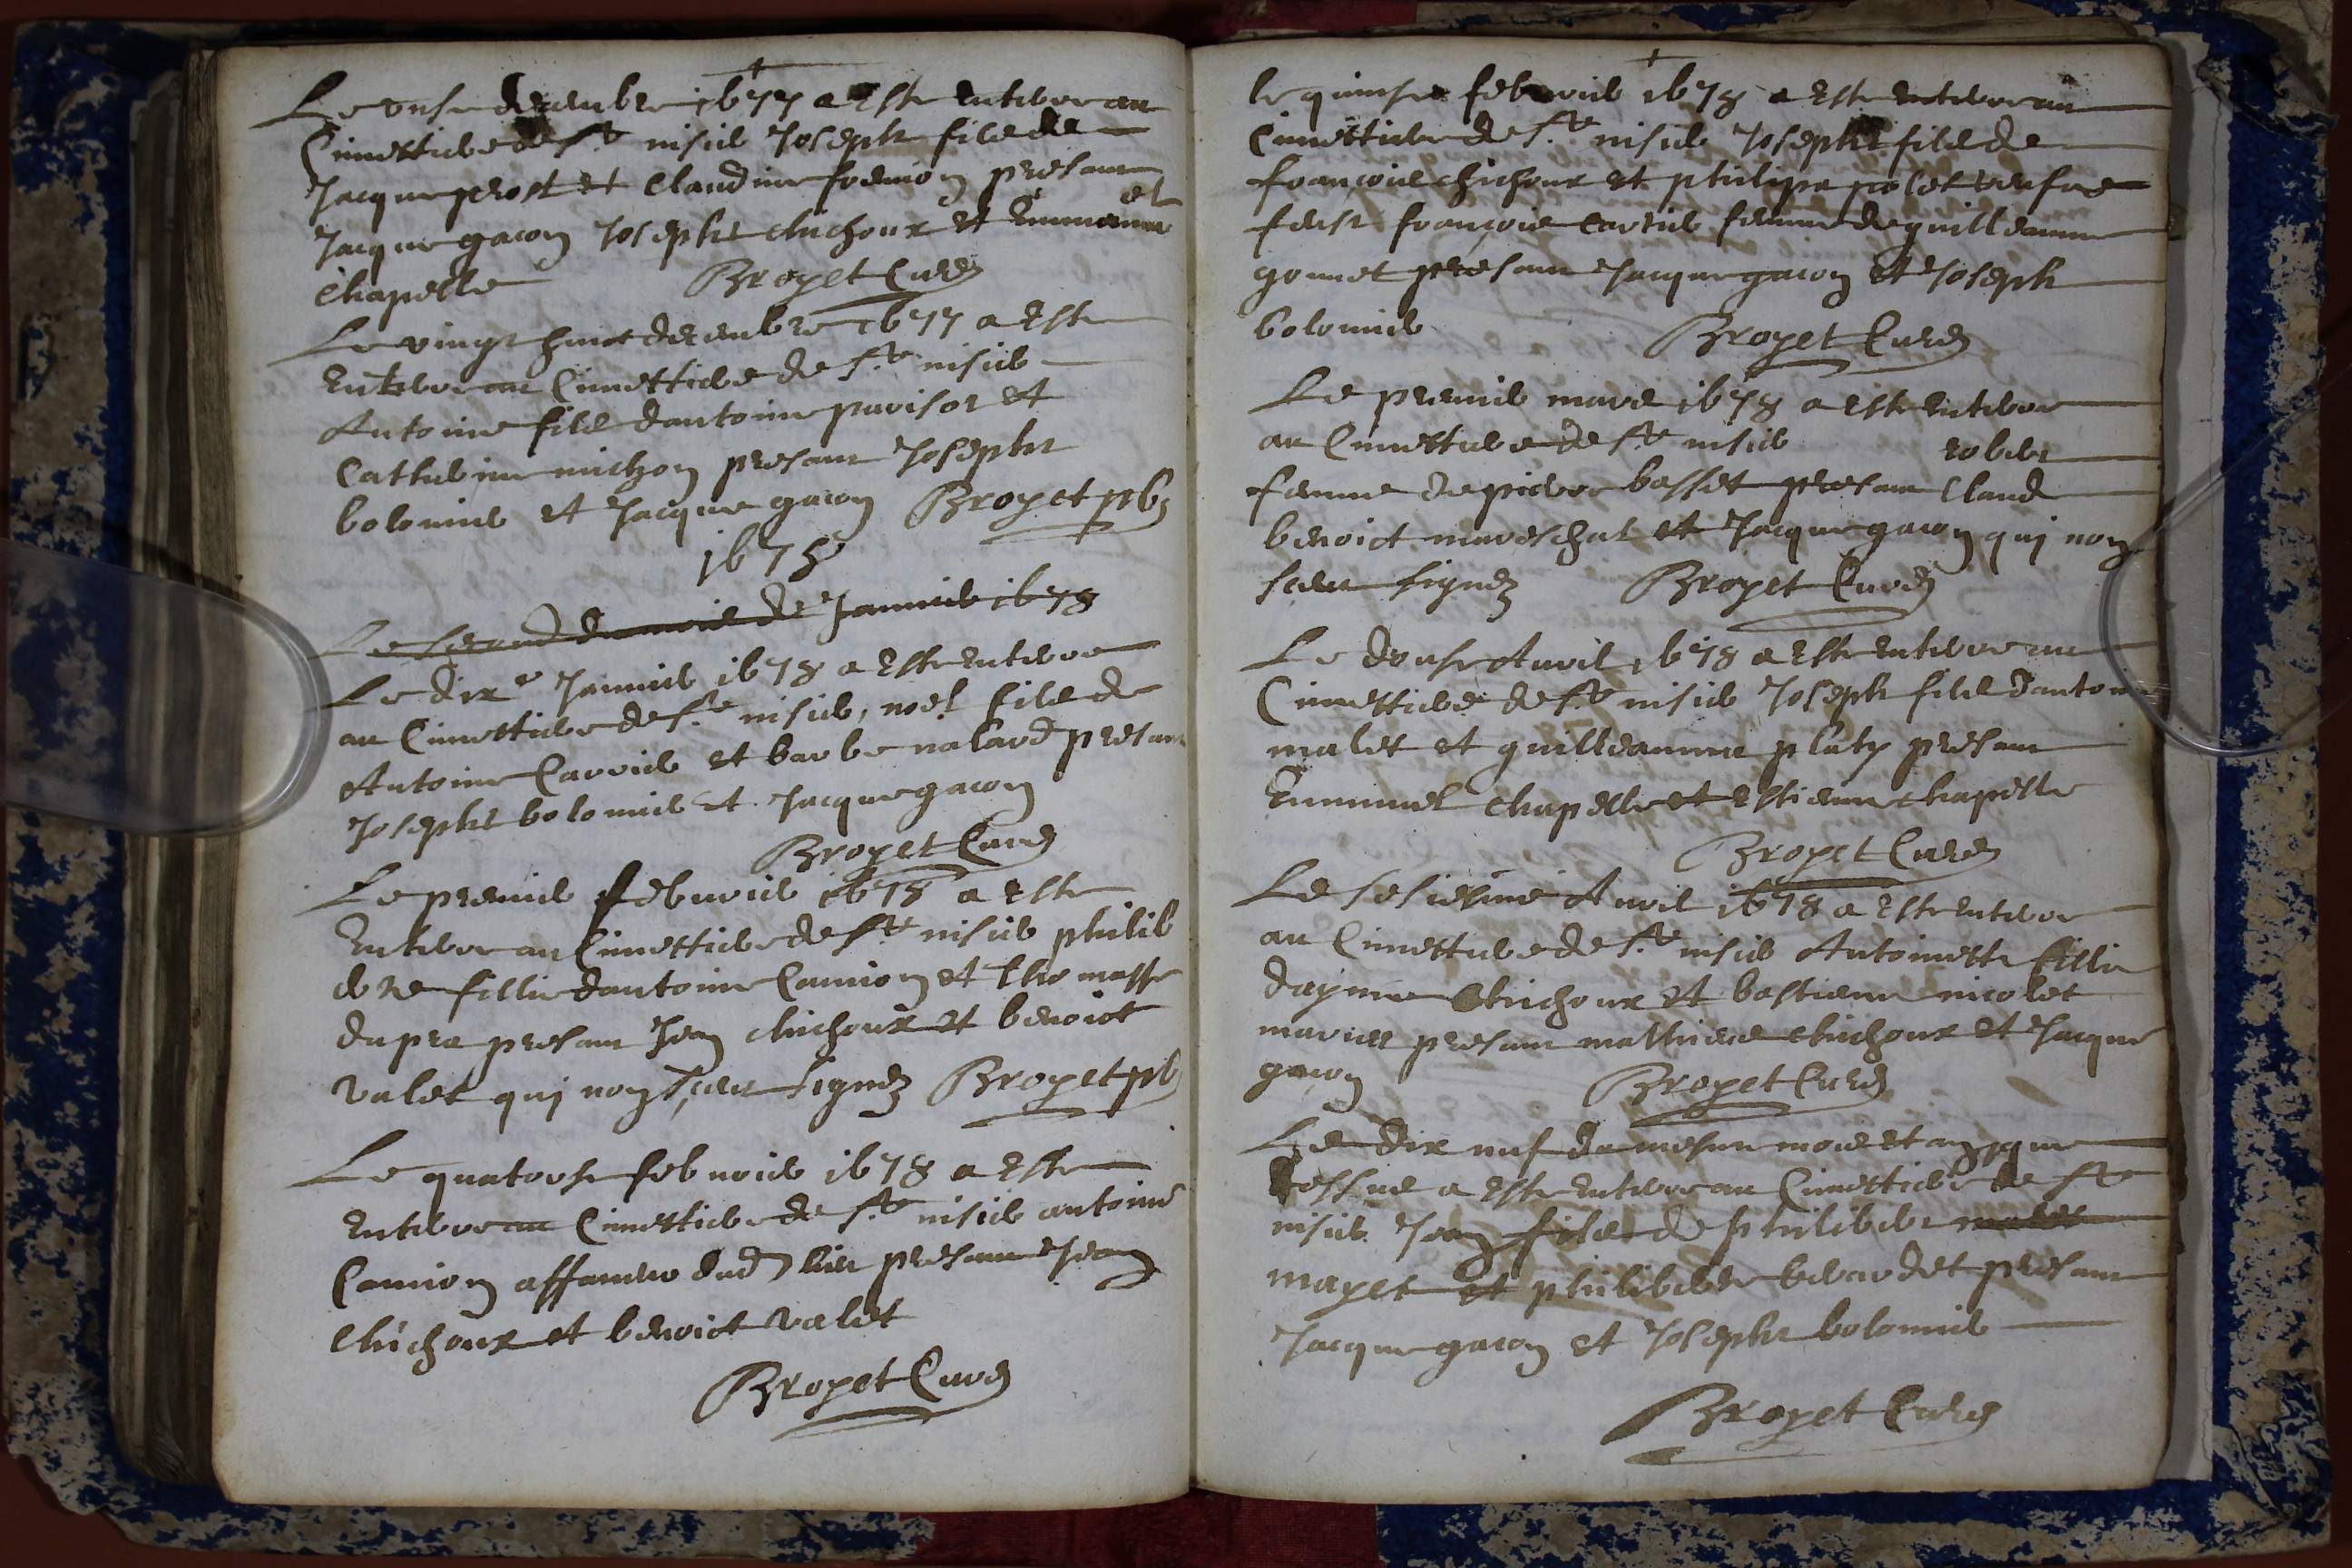 Le onse decembre 1677 a este enterre au
Cimettiere de St nisier Joseph fils de
Jacque prost et Claudine fremion presant
Jacque gacon Joseph chichoux et Emmanuel
Chapelle Broyet Curé
Le vingt huict decembre 1677 a este
enterre au Cimettiere de St nisier
Antoine fils dantoine parisot et
Catherine michon presant Joseph
bolomier et Jacque gacon Broyet pbr
1678
Le second du mois de Janvier 1678
Le dixe Janvier 1678 a este enterre
au Cimettiere de St nisier, noel fils de
Antoine Carrier et barbe nalard presant
Joseph bolomier et Jacque gacon
Broyet Curé
Le premier febvrier 1678 a este
enterre au Cimettiere de St nisier philib
erte fillie dantoine Camion et thomasse
dupra presant Jean chichoux et benoict
valet qui nont sceu signez Broyet pb
Le quatorse febvrier 1678 a este
enterre au Cimettiere de St nisier antoine
Camion affaneur dud lieu presant Jean
Chichoux et benoict valet
Broyet Curé
le quinse febvrier 1678 a este enterre au
Cimettiere de St nisier Joseph fils de
francois chichoux et philipa polet
francoise carrier femme de guilleaume
gonnet presant Jacque gacon et Joseph
bolomier Broyet Curé
Le premier mars 1678 a este enterre
au Cimettiere de St nisier rober
femme de pierre basset presant Claud
benoict mareschal et Jacque gacon qui non
sceu signez Broyet Curé
Le douse Avril 1678 a este enterre au
Cimettiere de St nisier Joseph fils dantoine
malet et guilleaume platy presant
Emmanuel chapelle et estienne chapelle
Broyet Curé
Le sesiesme Avril 1678 a este enterre
au Cimettiere de St nisier Antoinette fillie
dayme Chichoux et bastienne nicolet
maries presant mathieu chichoux et Jacque
gacon Broyet Curé
Le dix nuf du mesme mois et an que
dessus a este enterre au Cimettiere de St
nisier Jean fils de philibert malet
mayet et philiberte berardet presant
Jacque gacon et Joseph bolomier
Broyet Curé